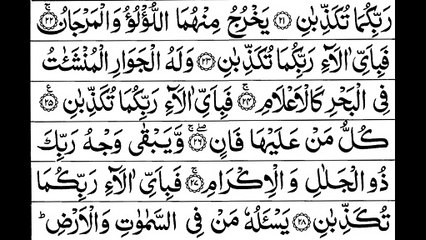 رَبِّكُمَا تُكَذِّبٰنِ ﴿۲۱﴾ يَخْرُجُ مِنْهُمَا اللُّؤْلُؤُ وَالْمَرْجَانُ ﴿۲۲﴾ۚ
فَبِاَىِّ اٰلَآءِ رَبِّكُمَا تُكَذِّبٰنِ ﴿۲۳﴾ وَلَهُ الْجَوَارِ الْمُنْشَئٰتُ
فِى الْبَحْرِ كَالْاَعْلَامِ ﴿۲۴﴾ۚ فَبِاَىِّ اٰلَآءِ رَبِّكُمَا تُكَذِّبٰنِ ﴿۲۵﴾ع
كُلُّ مَنْ عَلَيْهَا فَانٍ ﴿۲۶﴾ۚۖ وَّيَبْقٰى وَجْهُ رَبِّكَ
ذُو الْجَلٰلِ وَ الْاِكْرَامِ ﴿۲۷﴾ۚ فَبِاَىِّ اٰلَآءِ رَبِّكُمَا
تُكَذِّبٰنِ ﴿۲۸﴾ يَسْئَلُهٗ مَنْ فِى السَّمٰوٰتِ وَ الْاَرْضِؕ